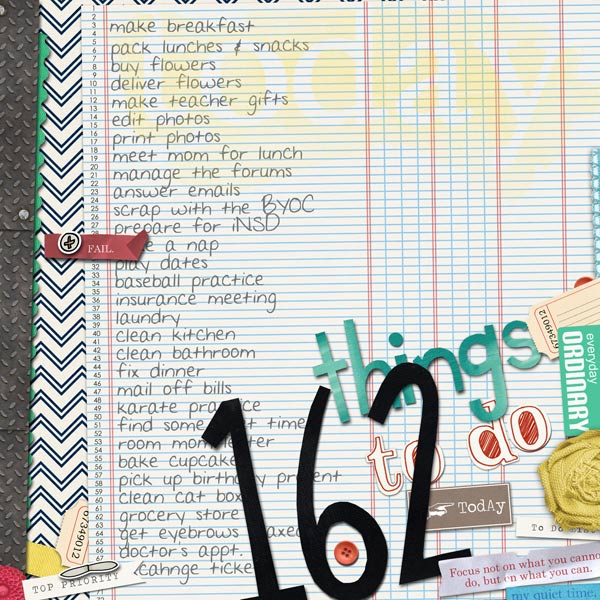 make breakfast
pack lunches & snacks
buy flowers
deliver flowers
make teacher gifts
edit photos
print photos
meet mom for lunch
manage the forums
answer emails
scrap with the BYOC
prepare for iNSD
FAIL.
a nap
play dates
baseball practice
insurance meeting
laundry
clean kitchen
clean bathroom
fix dinner
mail off bills
karate practice
find some time
room mom
bake cupcake
pick up birthday present
clean cat box
grocery store
get eyebrows
doctor's appt.
cahnge
TOP PRIORITY
67349012
today
things
162
to do
67349012
everyday
ORDINARY
TodAy
TO DO
Focus not on what you canno
do, but on what you can.
my quiet time,